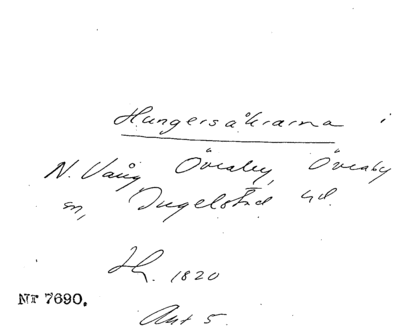 Hungersåkrarna i
N. Vång Övraby, Övraby
sn, Ingelstad hd.
H. 1820
Nr 7690.
Akt 5.